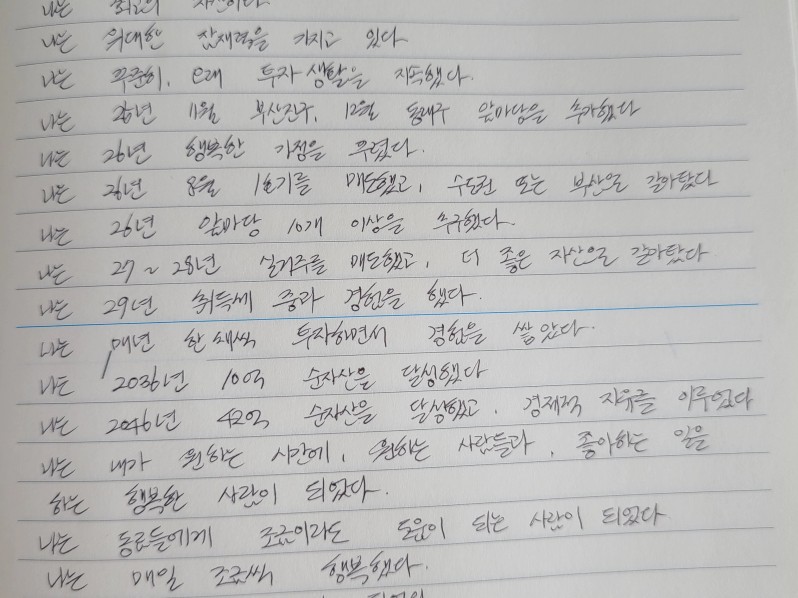 나는 최고의 자산이다.
나는 위대한 잠재력을 가지고 있다
나는 꾸준히, 오래 투자 생활을 지속했다.
나는 26년 11월 부산진구, 12월 동래구 앞마당을 추가했다
나는 26년 행복한 가정을 꾸렸다.
나는 26년 8월 1호기를 매도했고, 수도권 또는 부산으로 갈아탔다
나는 26년 앞마당 10개 이상을 추가했다.
나는 27~28년 실거주를 매도했고, 더 좋은 자산으로 갈아탔다
나는 29년 취득세 중과 경험을 했다.
나는 매년 한 채씩 투자하면서 경험을 쌓았다.
나는 2036년 10억 순자산을 달성했다
나는 2046년 42억 순자산을 달성했고, 경제적 자유를 이루었다
나는 내가 원하는 시간에, 원하는 사람들과, 좋아하는 일을
하는 행복한 사람이 되었다.
나는 동료들에게 조금이라도 도움이 되는 사람이 되었다
나는 매일 조금씩 행복했다.